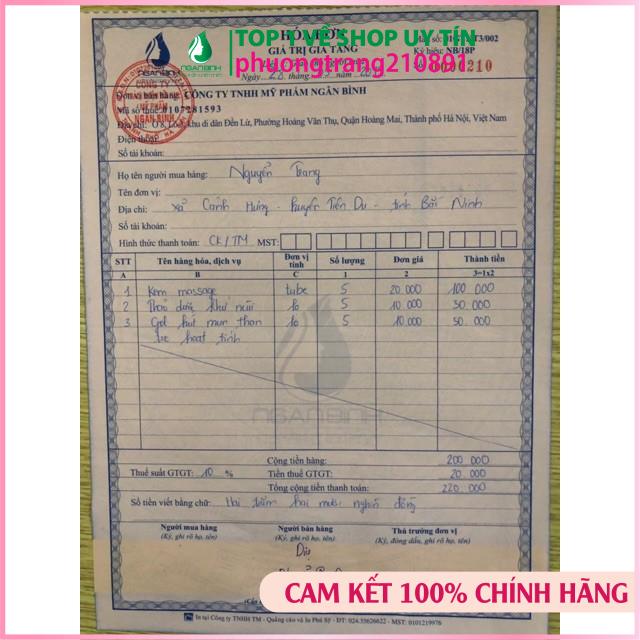 HÓA ĐƠN
TOP 1 VỀ SHOP UY TÍN
GIÁ TRỊ GIA TĂNG
phuongtrang210891
Ký hiệu: NB/18P
0000210
NGANBINH
Ngày 28 tháng năm
Đơn vị bán hàng: CÔNG TY TNHH MỸ PHẨM NGÂN BÌNH
Mã số thuế: 0107281593
CÔNG TY
MỸ PHẨM
NGÂN BÌNH
Địa chỉ: Ô 8, Lô 3, khu di dân Đền Lừ, Phường Hoàng Văn Thụ, Quận Hoàng Mai, Thành phố Hà Nội, Việt Nam
Điện thoại:
Số tài khoản:
Họ tên người mua hàng: Nguyễn Trang
Tên đơn vị:
Địa chỉ: xã Cảnh Hưng - huyện Tiên Du - tỉnh Bắc Ninh
Số tài khoản:
Hình thức thanh toán: CK/TM MST:
STT Tên hàng hóa, dịch vụ Đơn vị tính Số lượng Đơn giá Thành tiền
A B C 1 2 3=1x2
1 Kem massage tube 5 20.000 100 000
2 Thảo dược khử mùi lọ 5 10.000 50.000
3 Gel hút mụn than lọ 5 10.000 50.000
tre hoạt tính
NGANBINH
Cộng tiền hàng: 200 000
Thuế suất GTGT: 10 % Tiền thuế GTGT: 20.000
Tổng cộng tiền thanh toán: 220.000
Số tiền viết bằng chữ: Hai trăm hai mươi nghìn đồng
Người mua hàng Người bán hàng Thủ trưởng đơn vị
(Ký, ghi rõ họ, tên) (Ký, ghi rõ họ, tên) (Ký, đóng dấu, ghi rõ họ, tên)
CAM KẾT 100% CHÍNH HÃNG
In tại Công ty TNHH TM - Quảng cáo và In Phú Sỹ - ĐT: 024.35626622 - MST: 0101219976